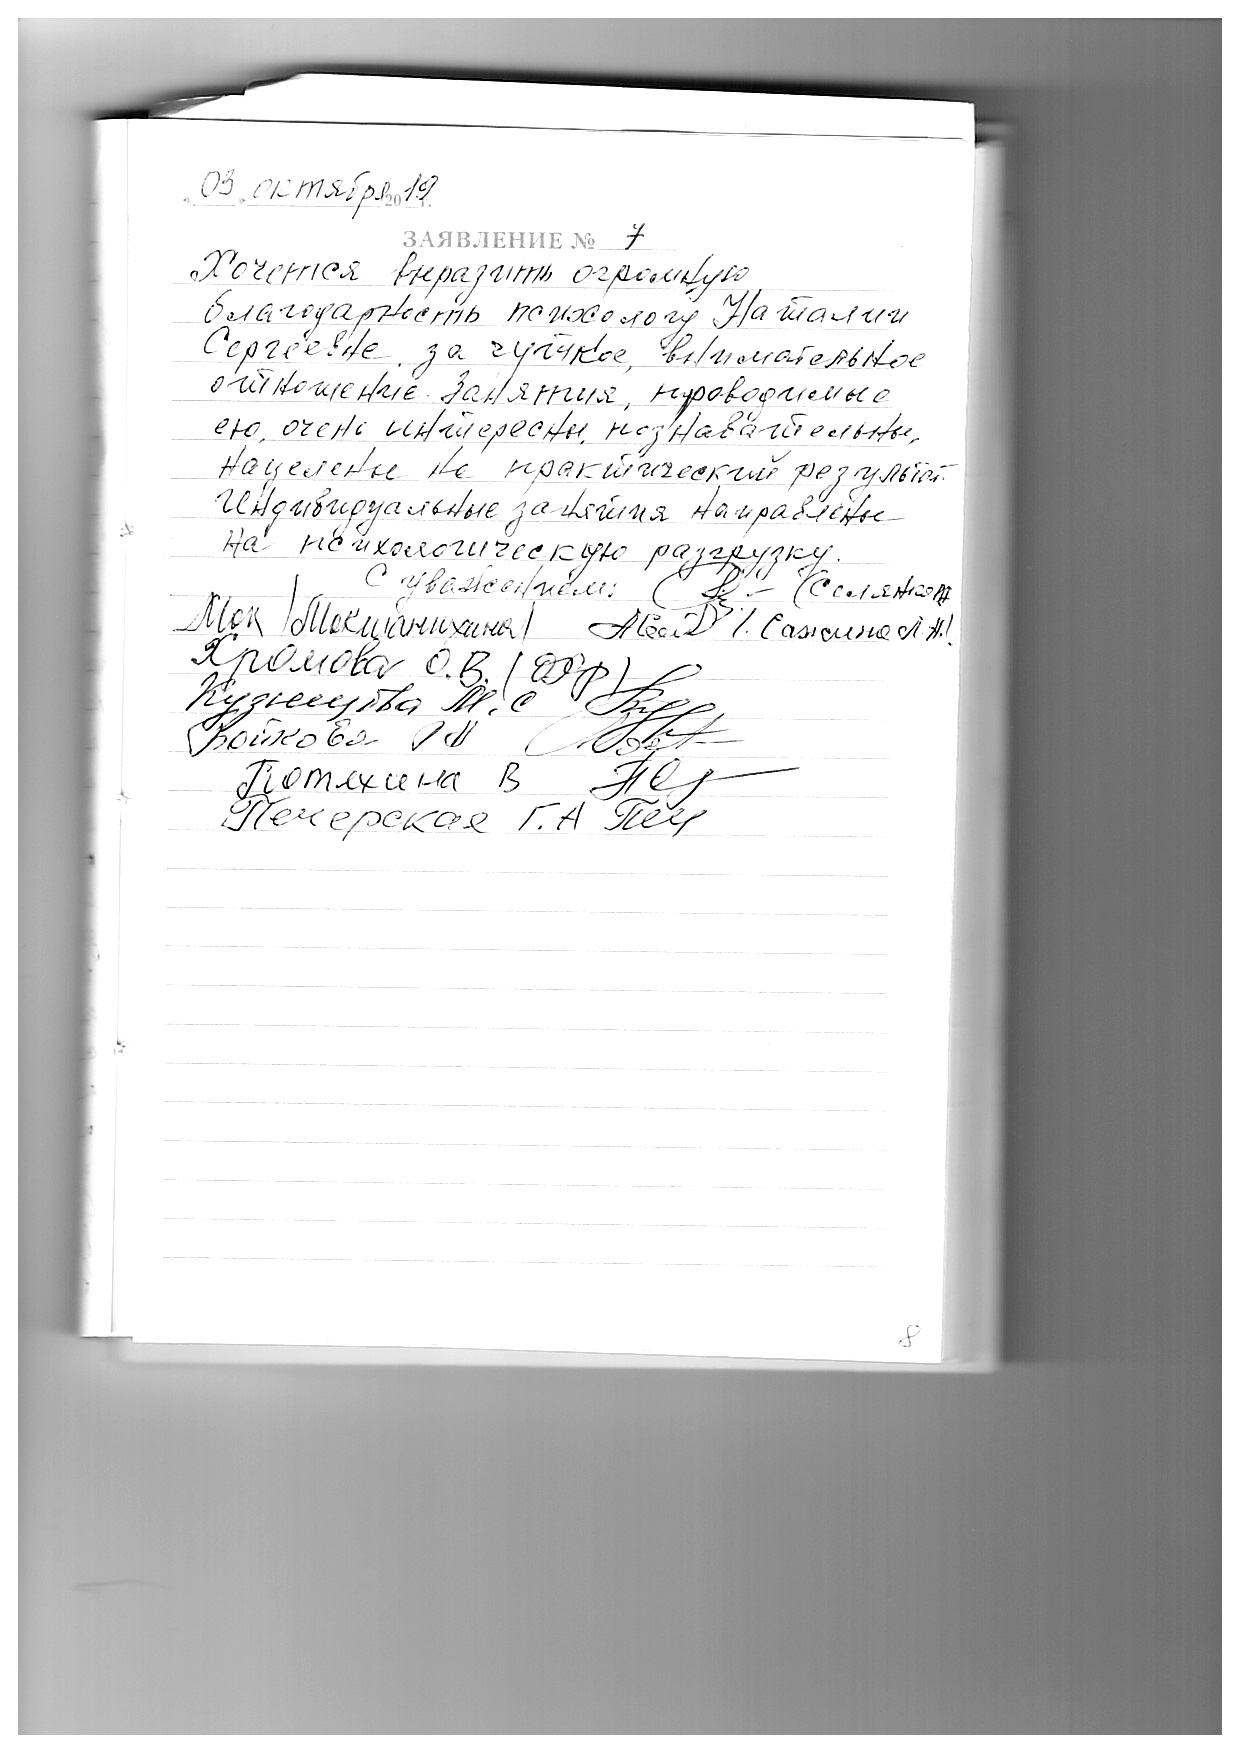 „03" октября 2019 г.
ЗАЯВЛЕНИЕ № 7
Хочется выразить огромную
благодарность психологу Наталии
Сергеевне за чуткое, внимательное
отношение. Занятия, проводимые
ею, очень интересны, познавательны,
нацелены на практический результат.
Индивидуальные занятия направлены
на психологическую разгрузку.
С уважением:
Сажина Л.Н.
Хромова О.В.
Кузнецова М.С
Войкова
Потяхина В
Печерская Г.А Печ
8